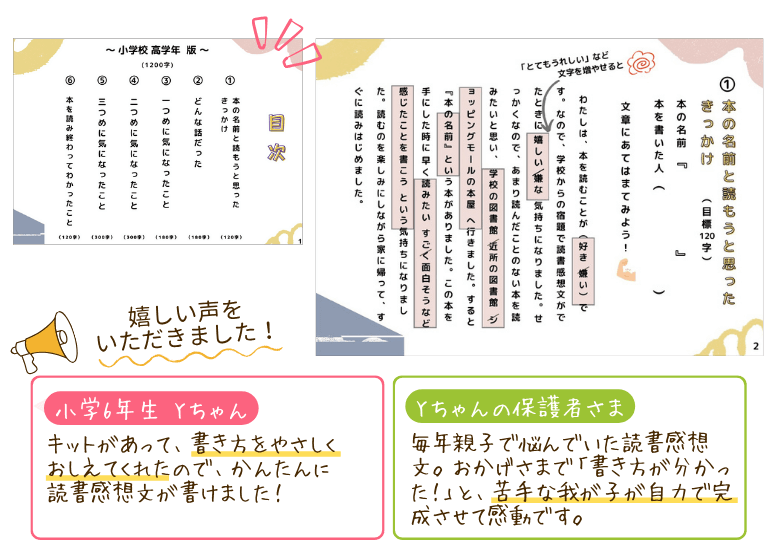 ～ 小学校 高学年 版 ～
(1200字)
目次
① 本の名前と読もうと思った
きっかけ (120字)
② どんな話だった (180字)
③ 一つめに気になったこと (180字)
④ 二つめに気になったこと (300字)
⑤ 三つめに気になったこと (300字)
⑥ 本を読み終わってわかったこと (120字)
1
①本の名前と読もうと思った
きっかけ (目標120字)
本の名前『 』
本を書いた人 ( )
文章にあてはまてみよう！
「とてもうれしい」など
文字を増やせると
わたしは、本を読むことが(好き 嫌い)で
す。なので、学校からの宿題で読書感想文がで
たときに 嬉しい/嫌な 気持ちになりました。せ
っかくなので、あまり読んだことのない本を読
みたいと思い、学校の図書館/近所の図書館/シ
ョッピングモールの本屋 へ行きました。すると
『本の名前』という本がありました。この本を
手にした時に早く読みたい すごく面白そうなど
感じたことを書こう という気持ちになりまし
た。読むのを楽しみにしながら家に帰って、す
ぐに読みはじめました。
2
嬉しい声を
いただきました！
小学6年生 Yちゃん
キットがあって、書き方をやさしく
おしえてくれたので、かんたんに
読書感想文が書けました！
Yちゃんの保護者さま
毎年親子で悩んでいた読書感想
文。おかげさまで「書き方が分かっ
た！」と、苦手な我が子が自力で完
成させて感動です。